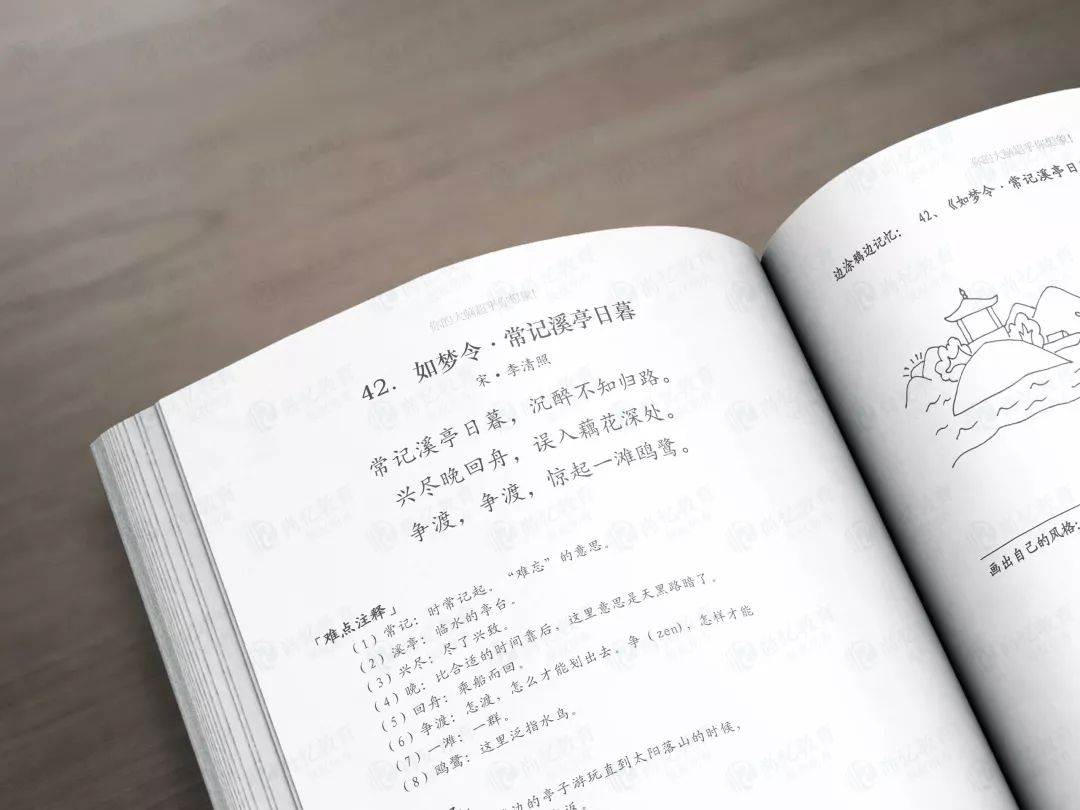 你的大脑超乎你想象!
42. 如梦令·常记溪亭日暮
宋·李清照
常记溪亭日暮，沉醉不知归路。
兴尽晚回舟，误入藕花深处。
争渡，争渡，惊起一滩鸥鹭。
「难点注释」
（1）常记：时常记起．“难忘”的意思。
（2）溪亭：临水的亭台．
（3）兴尽：尽了兴致。
（4）晚：比合适的时间靠后，这里意思是天黑路暗了。
（5）回舟：乘船而回。
（6）争渡：怎渡，怎么才能划出去．争（zen），怎样才能
（7）一滩：一群。
（8）鸥鹭：这里泛指水鸟。
边的亭子游玩直到太阳落山的时候，
返。
你的大脑超乎你想象!
42、《如梦令·常记溪亭日
边涂鸦边记忆：
画出自己的风格：
尚忆教育